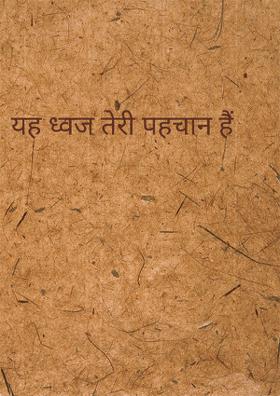 यह ध्वज तेरी पहचान हैं